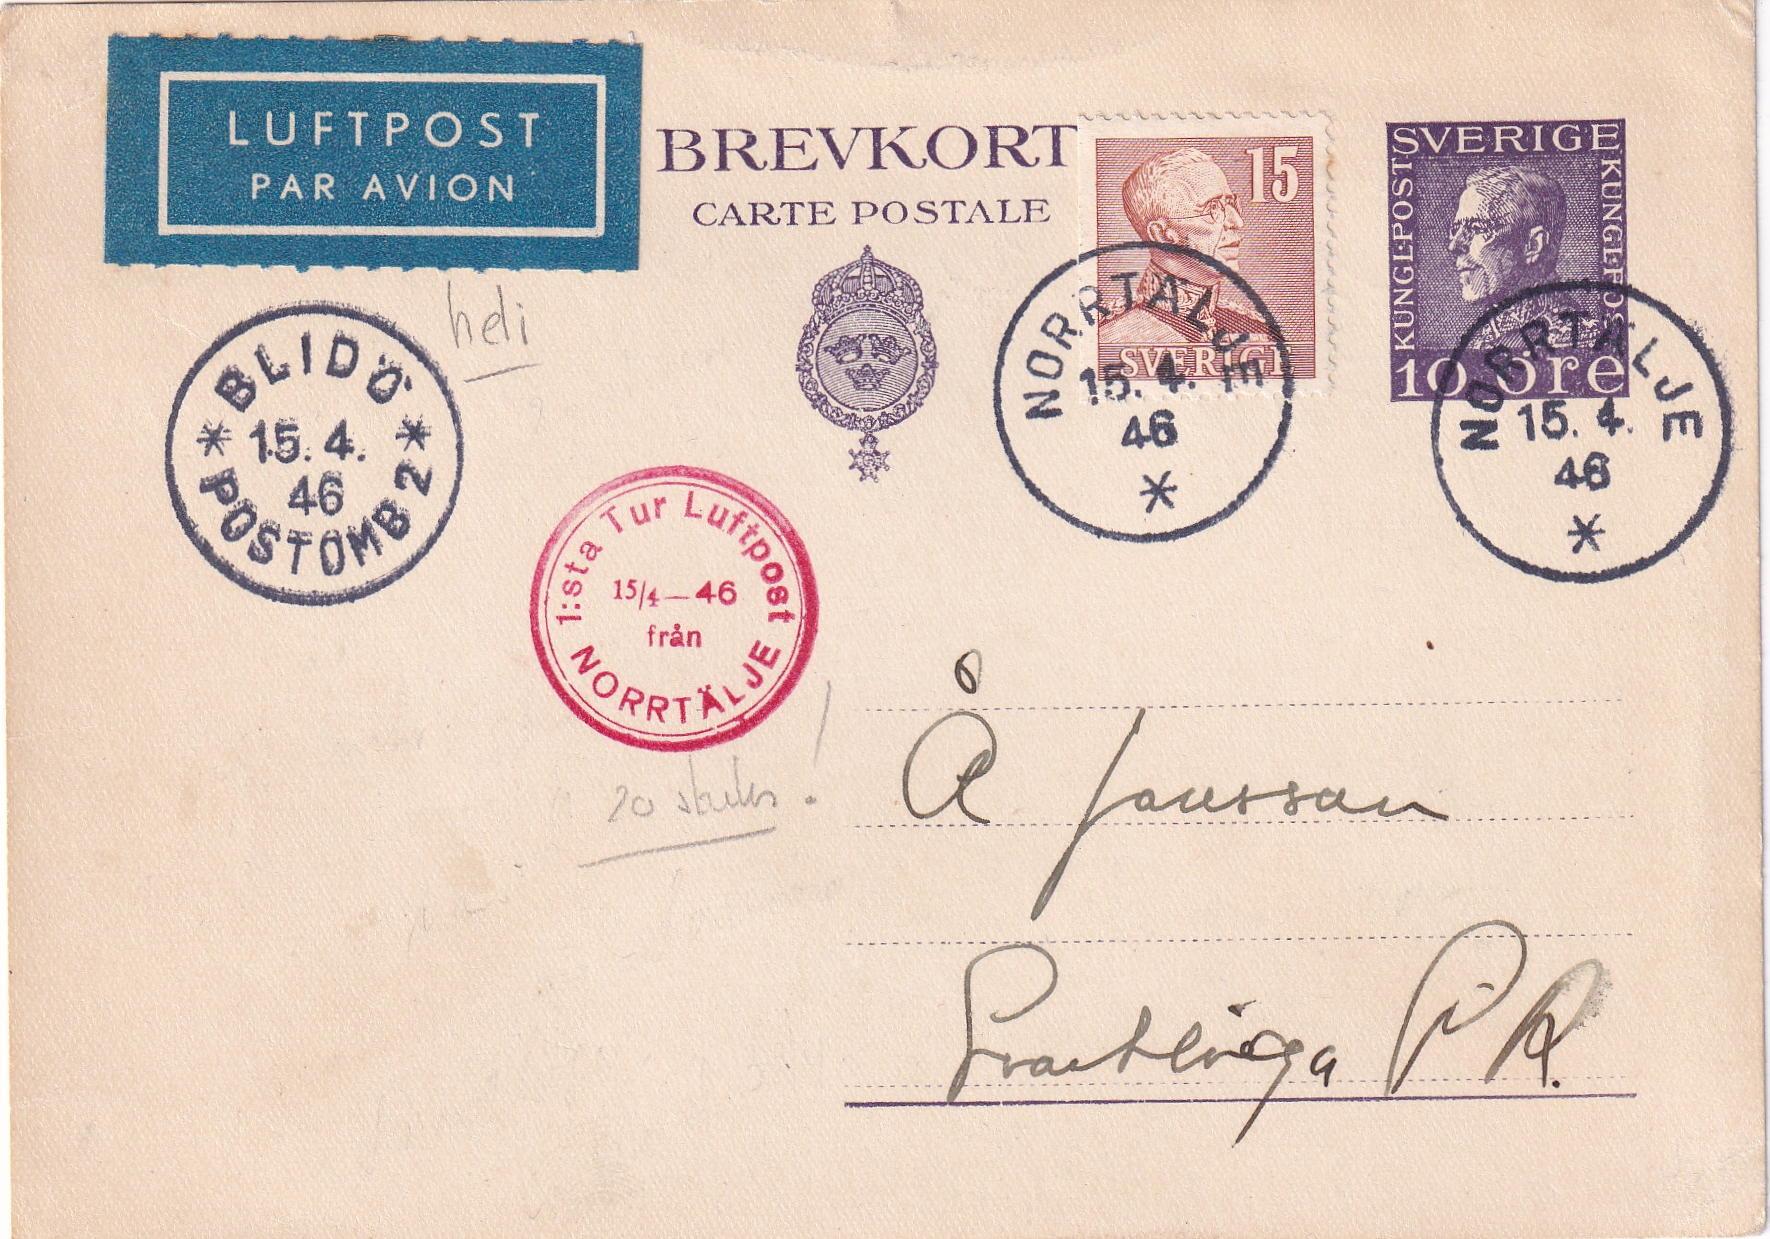 LUFTPOST
PAR AVION
BREVKORT
CARTE POSTALE
15
SVERIGE
SVERIGE
KUNGL·POST
KUNGL·POST
10 öre
heli
* BLIDÖ *
15. 4.
46
POSTOMB 2
NORRTÄLJE
15. 4.
46
*
NORRTÄLJE
15. 4.
46
*
1:sta Tur Luftpost
15/4—46
från
NORRTÄLJE
20
!
Å Jansson